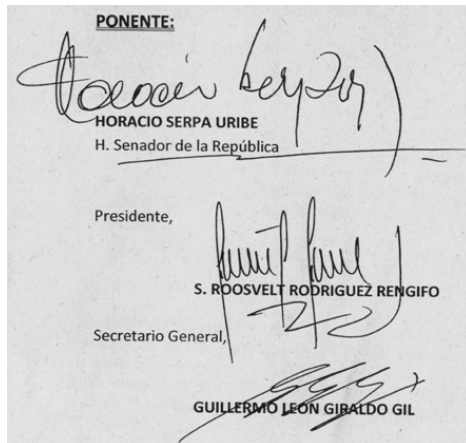 PONENTE:
Horacio Serpa
HORACIO SERPA URIBE
H. Senador de la República
Presidente,
S. ROOSVELT RODRIGUEZ RENGIFO
Secretario General,
GUILLERMO LEON GIRALDO GIL